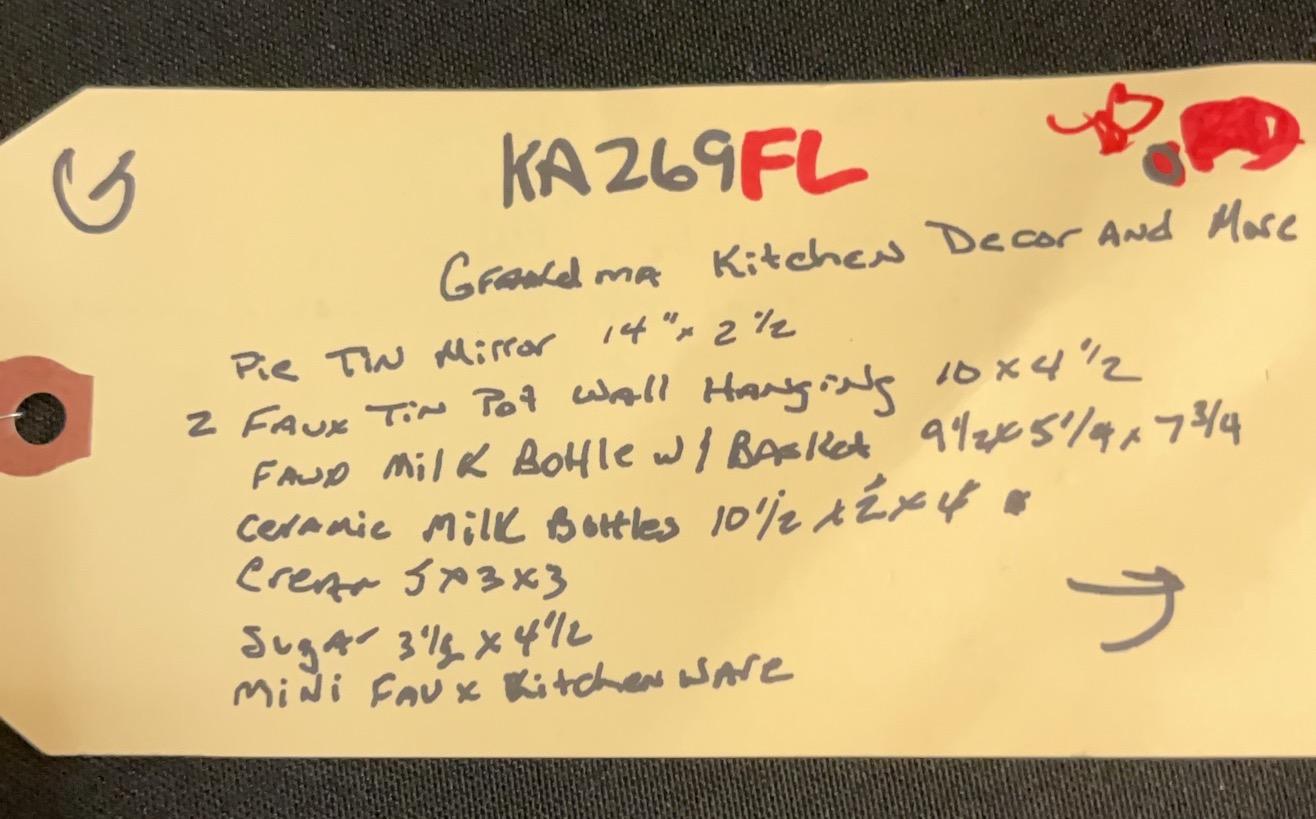 G
KA269FL
Grandma Kitchen Decor And More
Pie Tin Mirror 14" x 2 1/2
2 Faux Tin Pot Wall Hanging 10 x 4 1/2
Faux Milk Bottle w/ Basket 9 1/2 x 5 1/4 x 7 3/4
Ceramic Milk Bottles 10 1/2 x 2 x 4
Cream 5 x 3 x 3
Sugar 3 1/2 x 4 1/2
Mini Faux Kitchen Ware